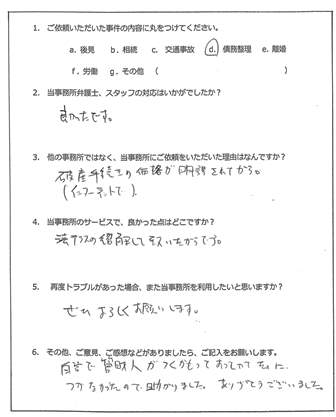 1. ご依頼いただいた事件の内容に丸をつけてください。
a. 後見 b. 相続 c. 交通事故 d. 債務整理 e. 離婚
f. 労働 g. その他 ( )
2. 当事務所弁護士、スタッフの対応はいかがでしたか?
良かったです。
3. 他の事務所ではなく、当事務所にご依頼をいただいた理由はなんですか?
破産手続きの価格が明確されてから。
(インターネットで)
4. 当事務所のサービスで、良かった点はどこですか?
法テラスの
5. 再度トラブルがあった場合、また当事務所を利用したいと思いますか?
ぜひよろしくお願いします。
6. その他、ご意見、ご感想などがありましたら、ご記入をお願いします。
管財人がつくかもって
つかなかったので助かりました。ありがとうございました。